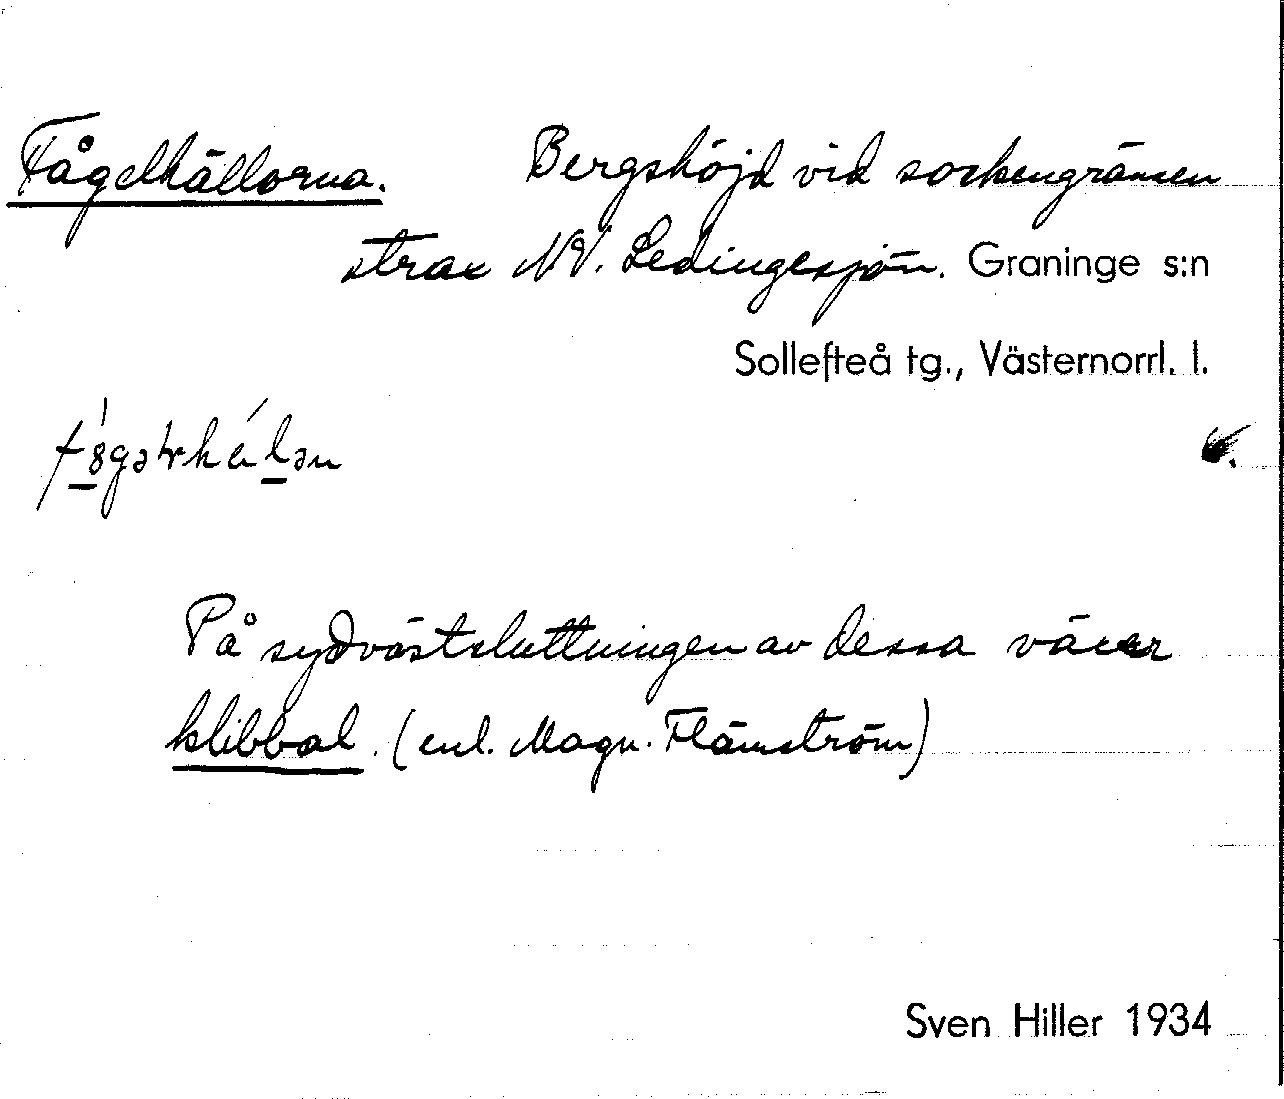 Fågelhällorna. Bergshöjd vid sockengränsen
strax NV. Ledingesjön. Graninge s:n
Sollefteå tg., Västernorrl. l.
På sydvästsluttningen av dessa växer
klibbal. (enl. Magn. Flämström)
Sven Hiller 1934